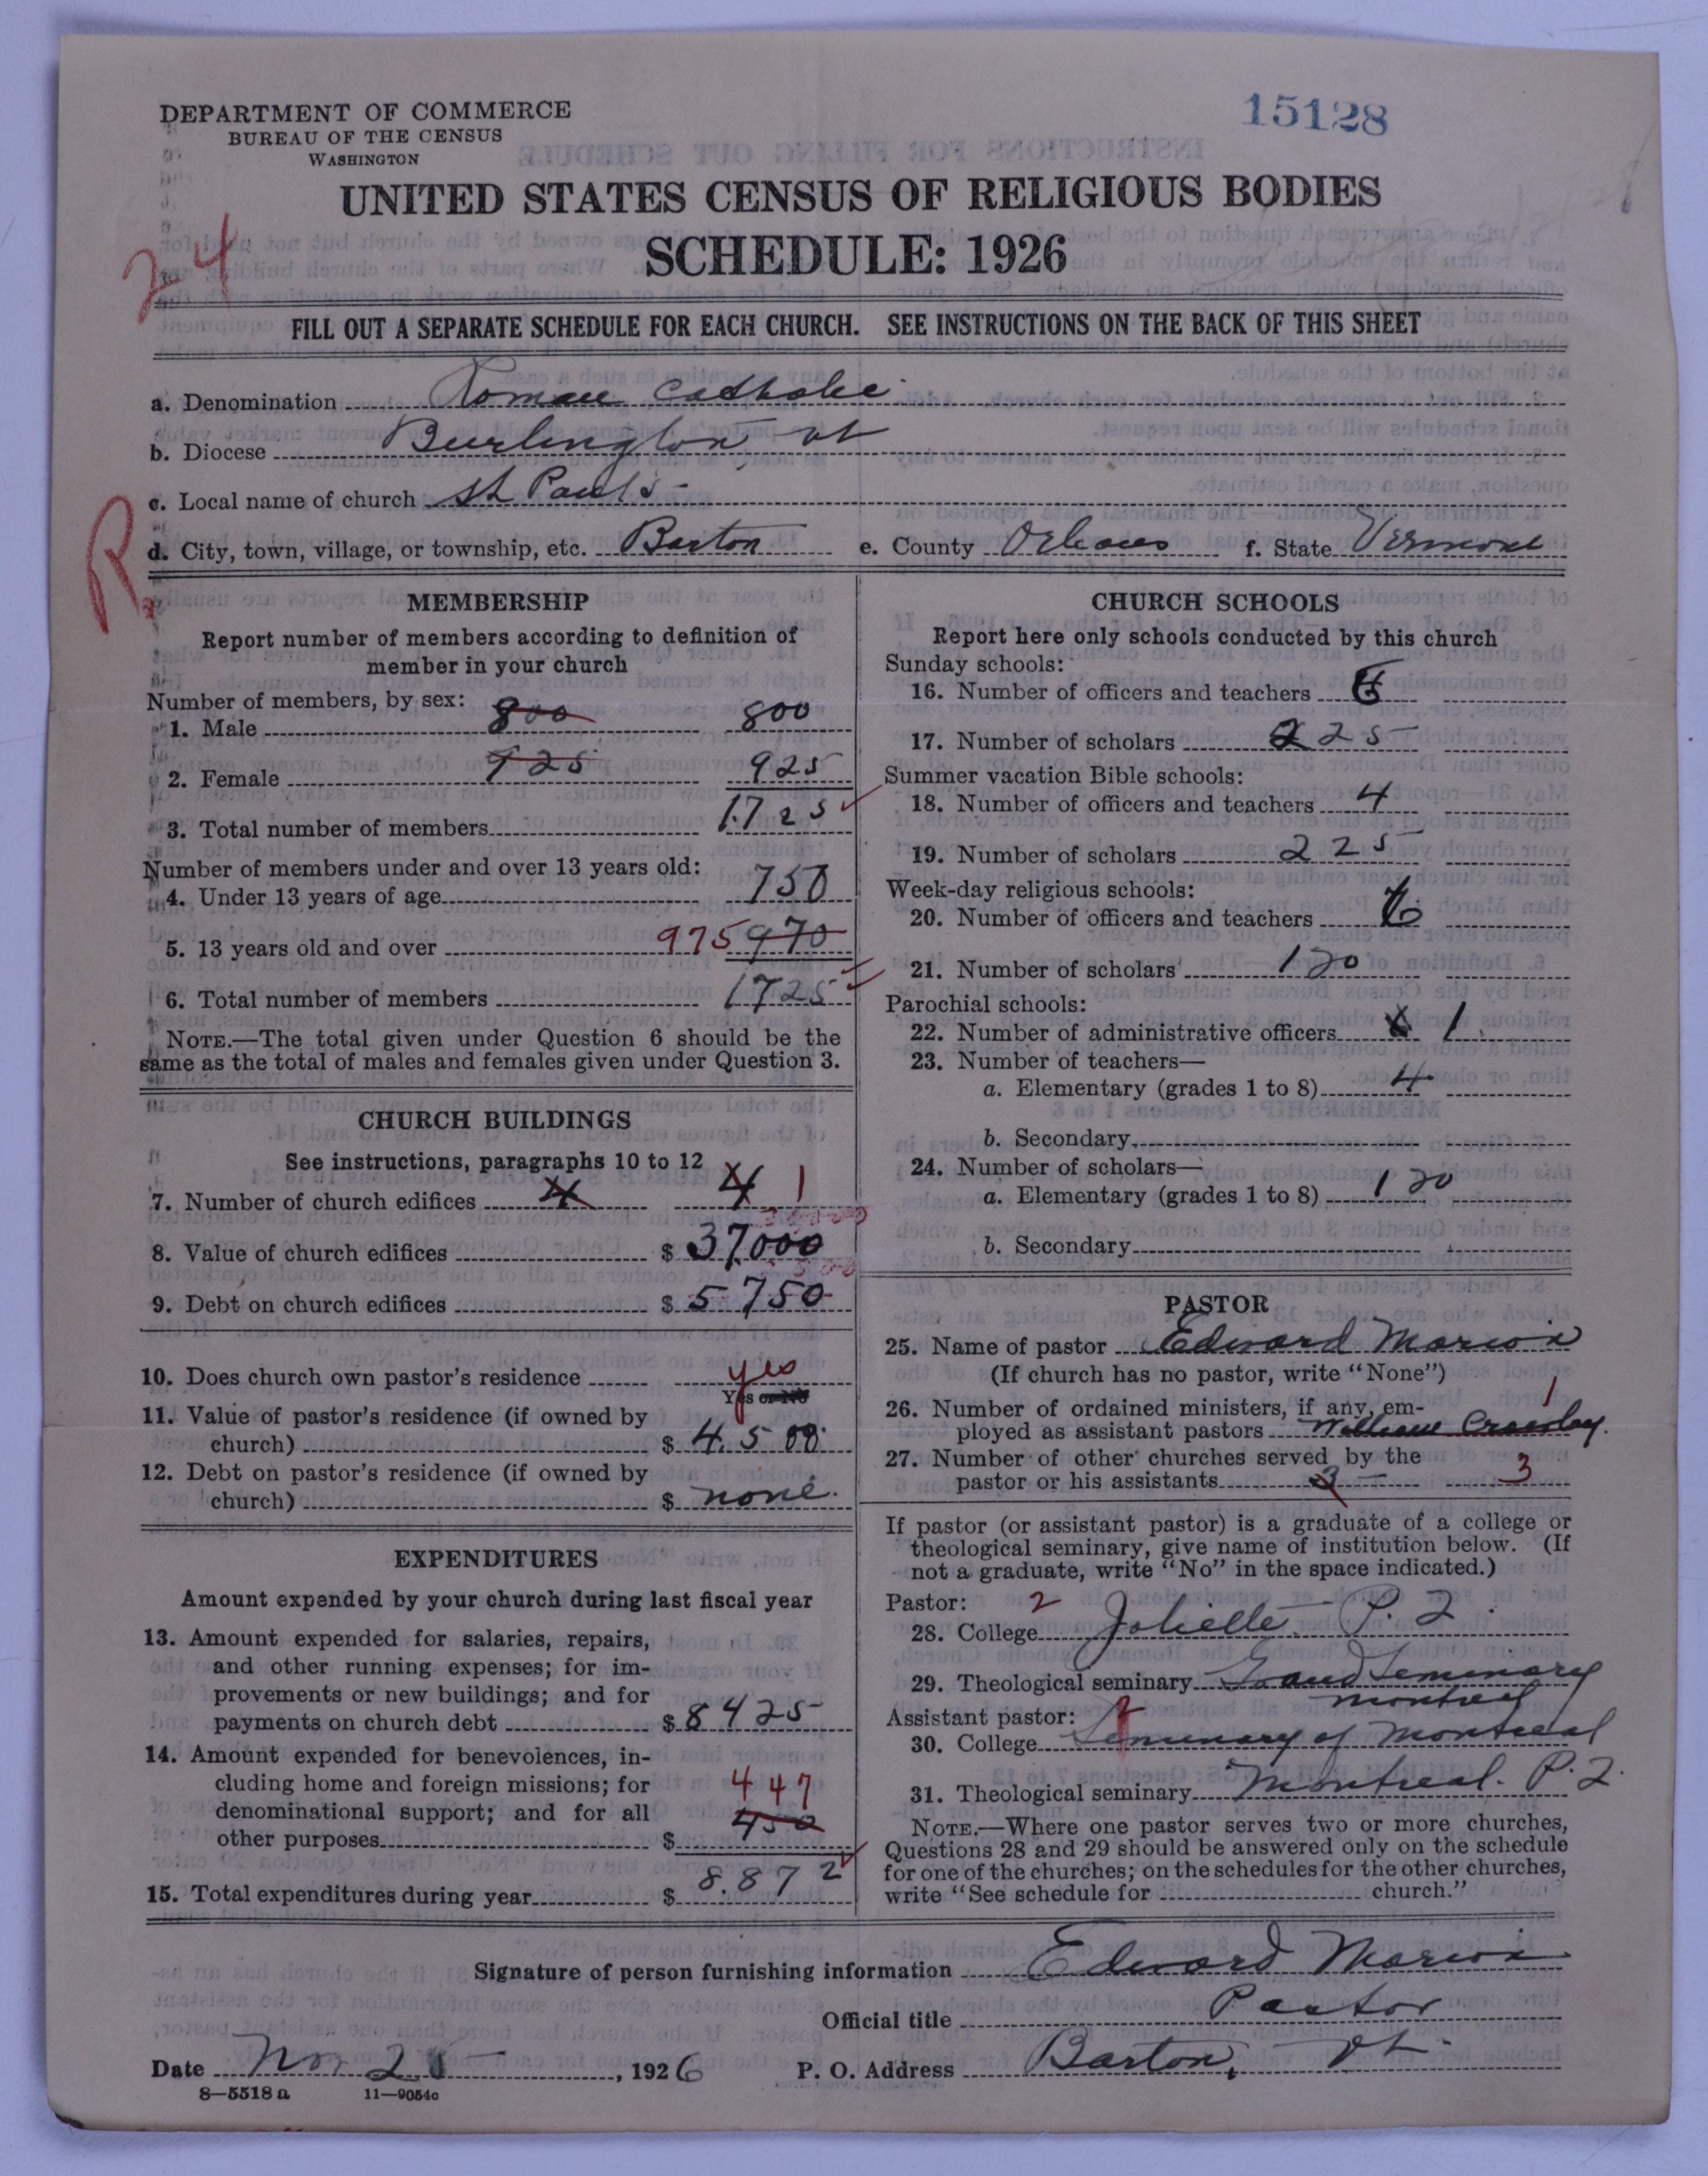 DEPARTMENT OF COMMERCE
BUREAU OF THE CENSUS
WASHINGTON
15128
UNITED STATES CENSUS OF RELIGIOUS BODIES
SCHEDULE: 1926
24
FILL OUT A SEPARATE SCHEDULE FOR EACH CHURCH. SEE INSTRUCTIONS ON THE BACK OF THIS SHEET
a. Denomination Roman Catholic
b. Diocese Burlington Vt
c. Local name of church St Paul's
R
d. City, town, village, or township, etc. Barton e. County Orleans f. State Vermont
MEMBERSHIP
Report number of members according to definition of
member in your church
Number of members, by sex:
1. Male 800 800
2. Female 925 925
3. Total number of members 1725
Number of members under and over 13 years old:
4. Under 13 years of age 750
5. 13 years old and over 975 970
6. Total number of members 1725
NOTE.—The total given under Question 6 should be the
same as the total of males and females given under Question 3.
CHURCH BUILDINGS
See instructions, paragraphs 10 to 12
7. Number of church edifices 4 4 1
8. Value of church edifices $ 37,000
9. Debt on church edifices $ 5750
10. Does church own pastor's residence yes
Yes or No
11. Value of pastor's residence (if owned by
church) $ 4.500
12. Debt on pastor's residence (if owned by
church) $ none.
EXPENDITURES
Amount expended by your church during last fiscal year
13. Amount expended for salaries, repairs,
and other running expenses; for im-
provements or new buildings; and for
payments on church debt $ 8425
14. Amount expended for benevolences, in-
cluding home and foreign missions; for
denominational support; and for all
447
other purposes $ 450
15. Total expenditures during year $ 8.872
CHURCH SCHOOLS
Report here only schools conducted by this church
Sunday schools:
16. Number of officers and teachers 6
17. Number of scholars 225
Summer vacation Bible schools:
18. Number of officers and teachers 4
19. Number of scholars 225
Week-day religious schools:
20. Number of officers and teachers 6
21. Number of scholars 120
Parochial schools:
22. Number of administrative officers 1
23. Number of teachers—
a. Elementary (grades 1 to 8) 4
b. Secondary
24. Number of scholars—
a. Elementary (grades 1 to 8) 120
b. Secondary
PASTOR
25. Name of pastor Edward Marion
(If church has no pastor, write "None")
26. Number of ordained ministers, if any, em- 1
ployed as assistant pastors William Crossley.
27. Number of other churches served by the
pastor or his assistants 3 3
If pastor (or assistant pastor) is a graduate of a college or
theological seminary, give name of institution below. (If
not a graduate, write "No" in the space indicated.)
Pastor: 2
28. College Joliette P. Q.
29. Theological seminary Grand Seminary
Montreal
Assistant pastor: 2
30. College Seminary of Montreal
31. Theological seminary Montreal. P. Q.
NOTE.—Where one pastor serves two or more churches,
Questions 28 and 29 should be answered only on the schedule
for one of the churches; on the schedules for the other churches,
write "See schedule for church."
Signature of person furnishing information Edward Marion
Official title Pastor
Date Nov 25, 1926 P. O. Address Barton, Vt.
8—5518 a 11—9054c